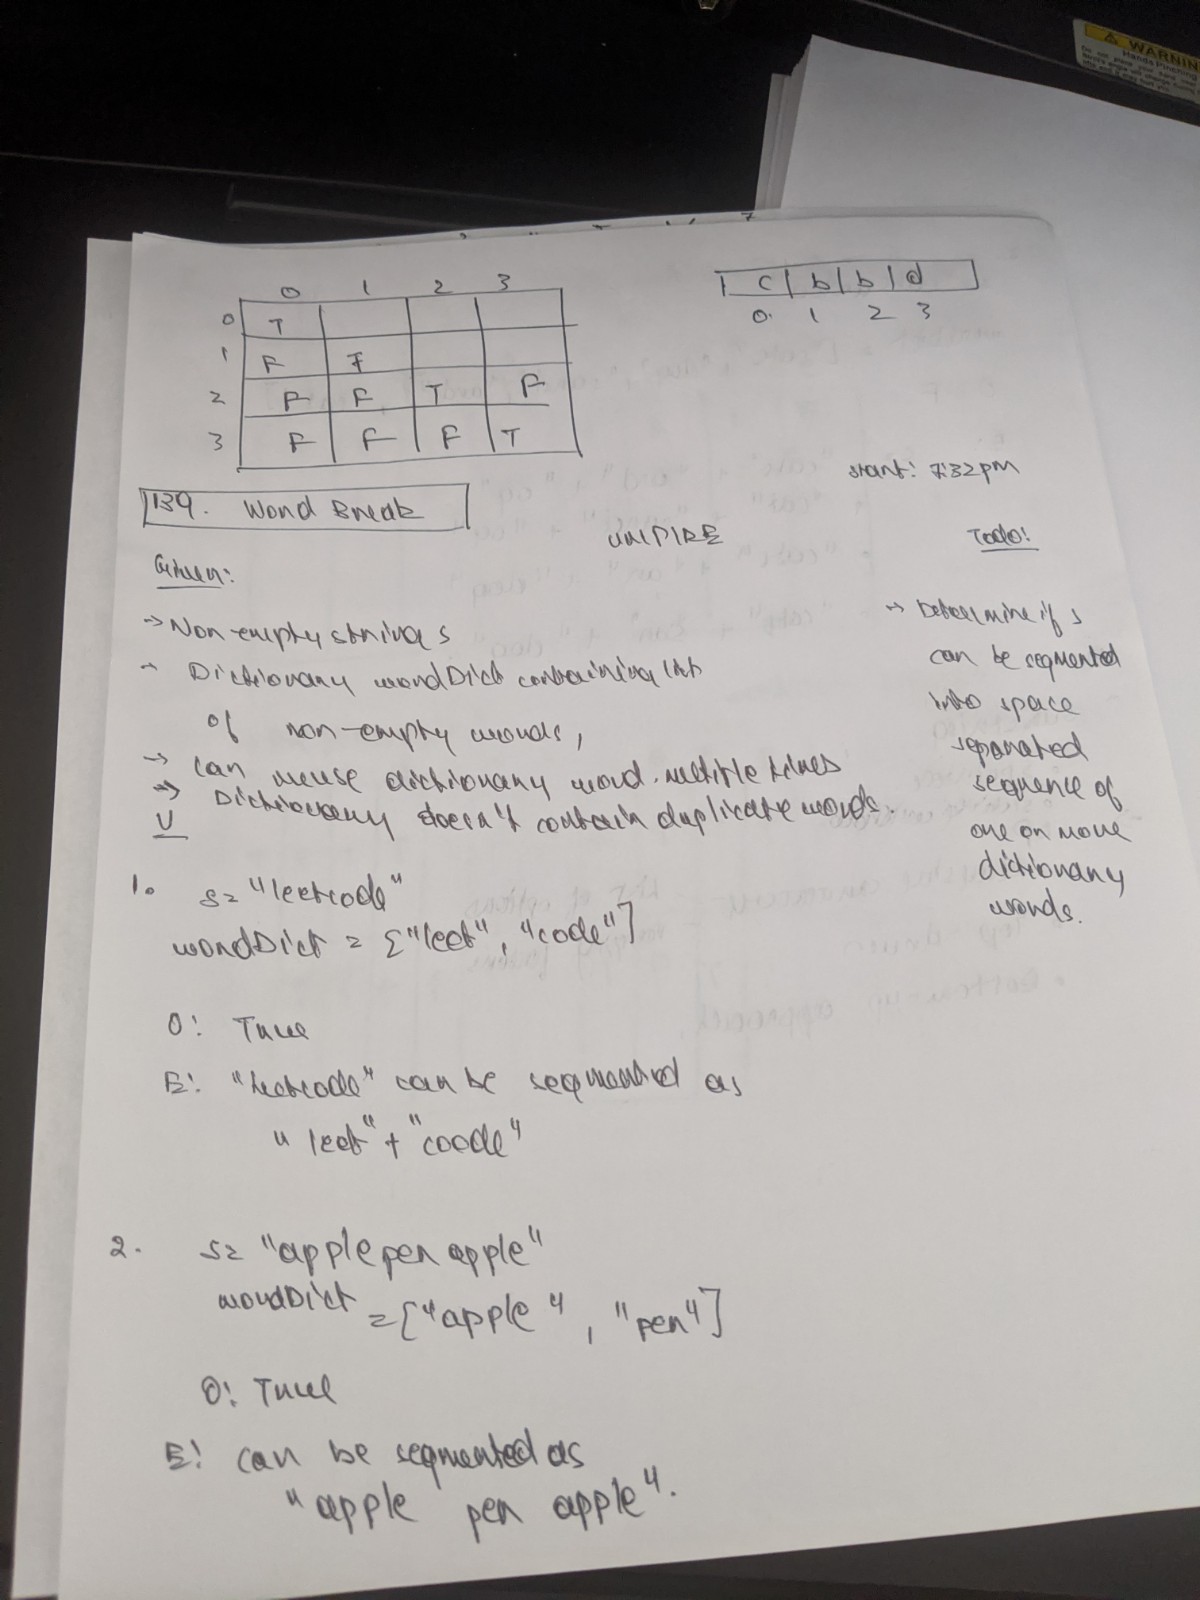 WARNIN
Hands Pinching
c b b d
0 1 2 3
0 1 2 3
0 T
1 F T
2 F F T F
3 F F F T
start: 7:32pm
139. Word Break
UMPIRE
Todo:
Given:
→ Non-empty string s
→ Dictionary wordDict containing list
of non-empty words,
→ can reuse dictionary word multiple times
→ Dictionary doesn't contain duplicate words.
U
→ Determine if s
can be segmented
into space
separated
sequence of
one or more
dictionary
words.
1. s= "leetcode"
wordDict = ["leet", "code"]
O: True
E: "leetcode" can be segmented as
"leet" + "coode"
2. s= "applepenapple"
wordDict
=["apple", "pen"]
O: True
E: can be segmented as
"apple pen apple".